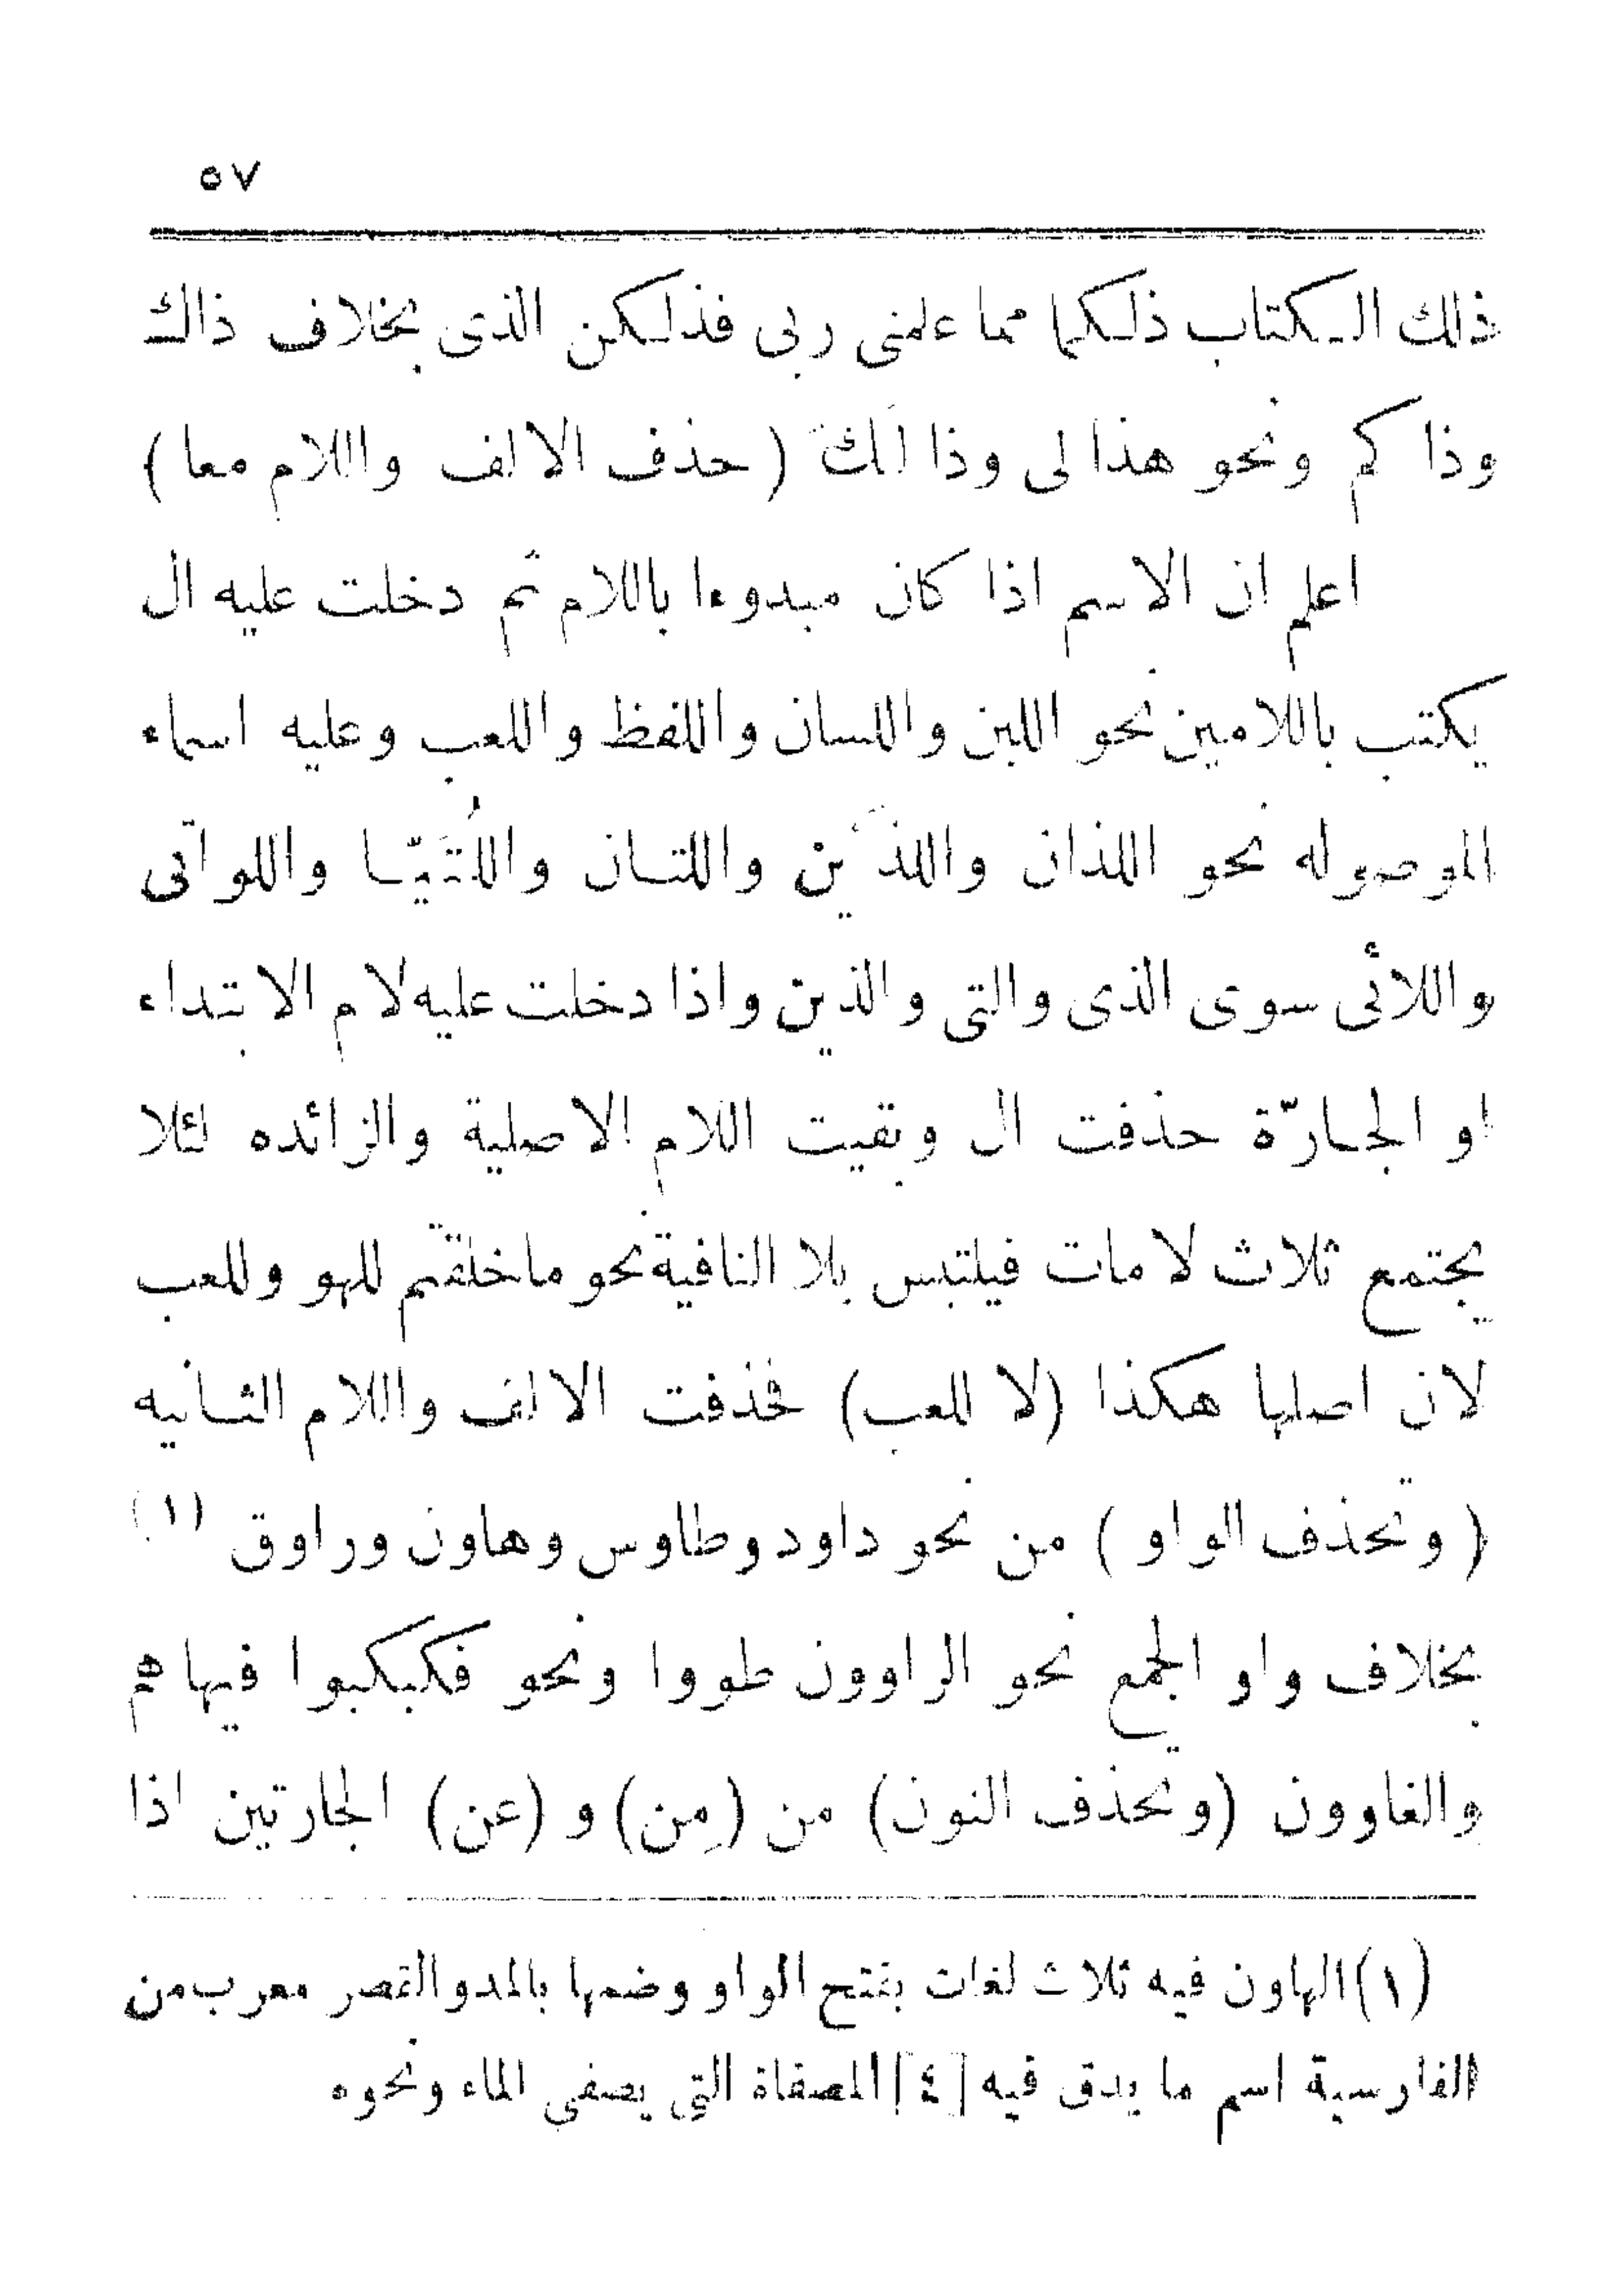 ٥٧
ذلك الكتاب ذلكما مما علمنى ربى فذلكن الذى بخلاف ذاك
وذا كم ونحو هذا لى وذا لك ( حذف الالف واللام معا )
اعلم ان الاسم اذا كان مبدوءا باللام ثم دخلت عليه ال
يكتب باللامين نحو اللبن واللسان واللفظ واللعب وعليه اسماء
الموصوله نحو اللذان واللذَين واللتان واللُتَيّا واللواتى
واللائى سوى الذى والتى والذين واذا دخلت عليه لام الابتداء
او الجارّة حذفت ال وبقيت اللام الاصلية والزائده لئلا
يجتمع ثلاث لامات فيلتبس بلا النافية نحو ما خلقتم للهو وللعب
لان اصلها هكذا (لا للعب) فحذفت الالف واللام الثانيه
( وتحذف الواو ) من نحو داود وطاوس وهاون وراوق (١)
بخلاف واو الجمع نحو الراوون طووا ونحو فكبكبوا فيها هم
والغاوون (وتحذف النون) من (مِن) و (عن) الجارتين اذا
(١) الهاون فيه ثلاث لغات بفتح الواو وضمها بالمد والقصر معرب من
الفارسية اسم ما يدق فيه [٤] المصفاة التي يصفي الماء ونحوه